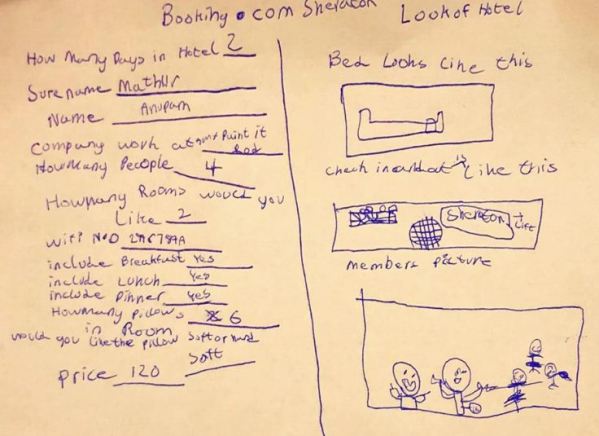 Booking.com Sheraton
How Many Days in Hotel 2
Surename Mathur
Name Anupam
Company work at Paint it
Red
How Many People 4
How many Rooms would you
Like 2
Wifi N.O
include Breakfast Yes
include Lunch Yes
include Dinner Yes
How many pillows 6
in Room
would you like the pillow Soft or Hard
Soft
Price 120
Look of Hotel
Bed Looks Like this
Check in is Like this
Sheraton
members picture